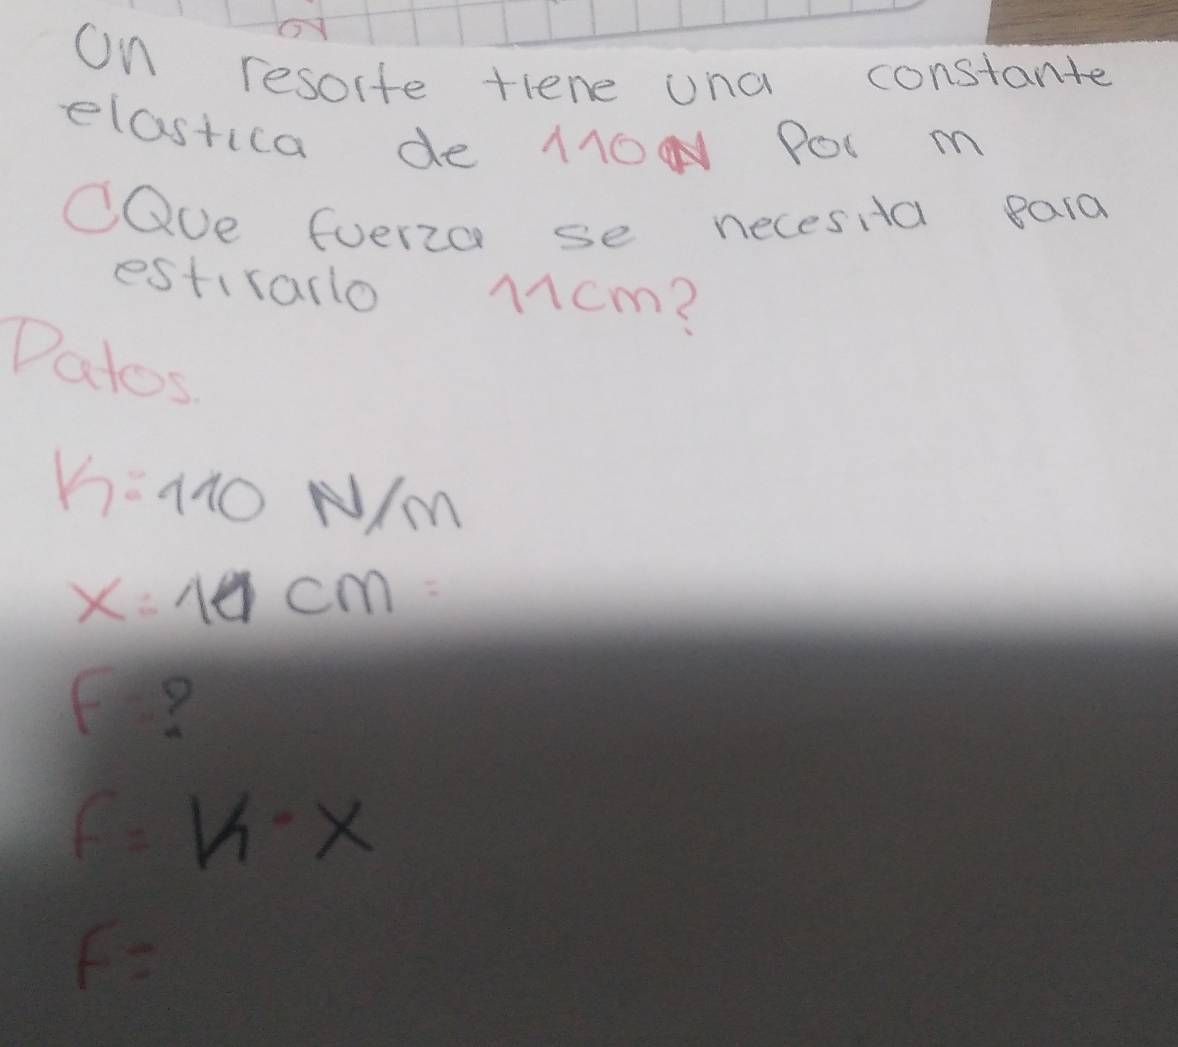 Un resorte tiene una constante
elastica de 110N Por m
¿Que fuerza se necesita para
estirarlo 11cm?
Datos.
K=110 N/m
x=11 cm =
F=?
F=K·x
F=